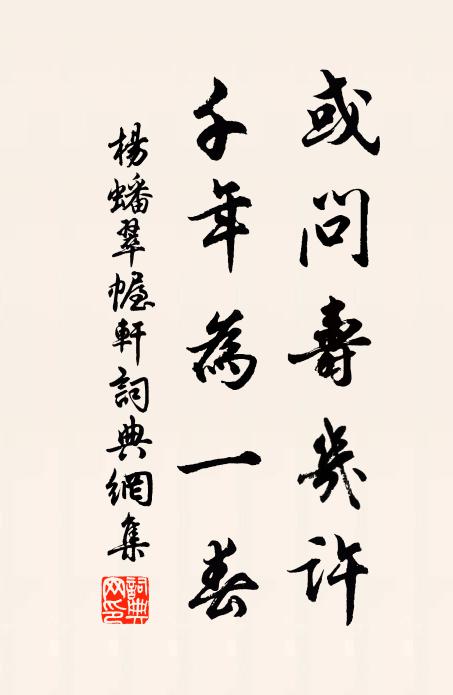 或問壽幾許
千年為一春
楊蟠翠幄軒詞典網集
詞典網印